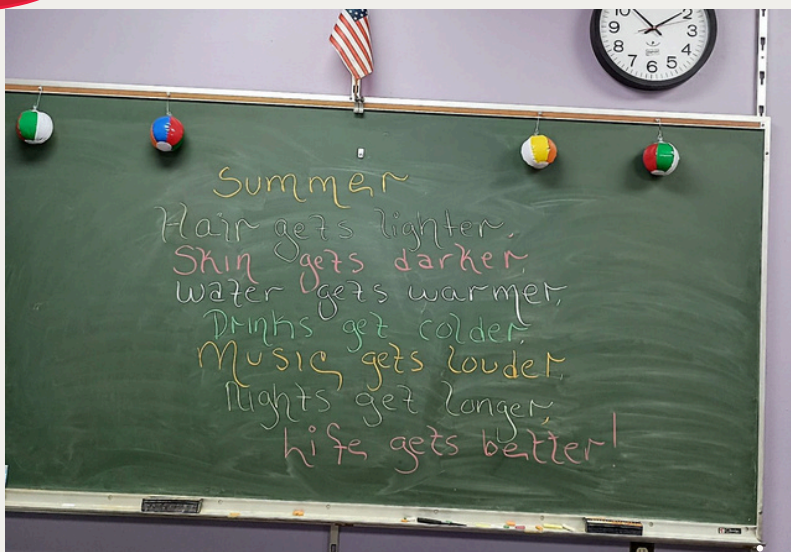 10 2
9 3
8 4
7 6 5
Summer
Hair gets lighter,
Skin gets darker,
Water gets warmer,
Drinks get colder,
Music gets louder,
Nights get longer,
Life gets better!